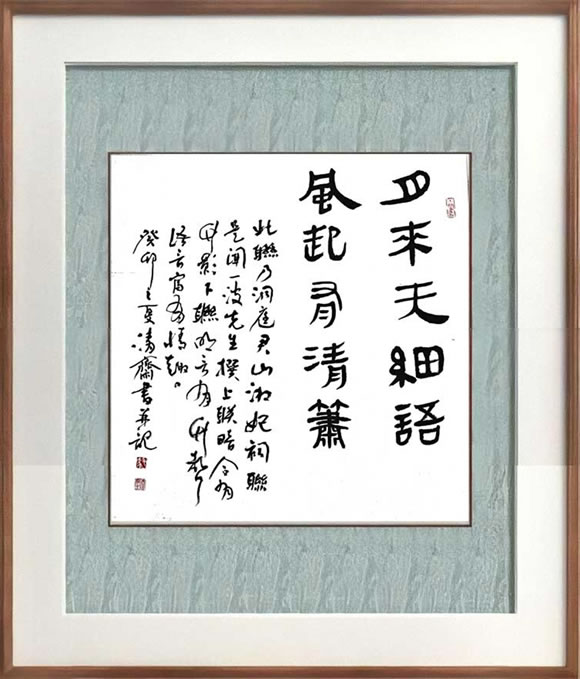 月來无細語
風起有清簫
此聯乃洞庭君山湘妃祠聯
是闻一波先生撰上联暗含有
竹影下聯明言有竹聲
语言富有情趣
癸卯之夏齋書并記